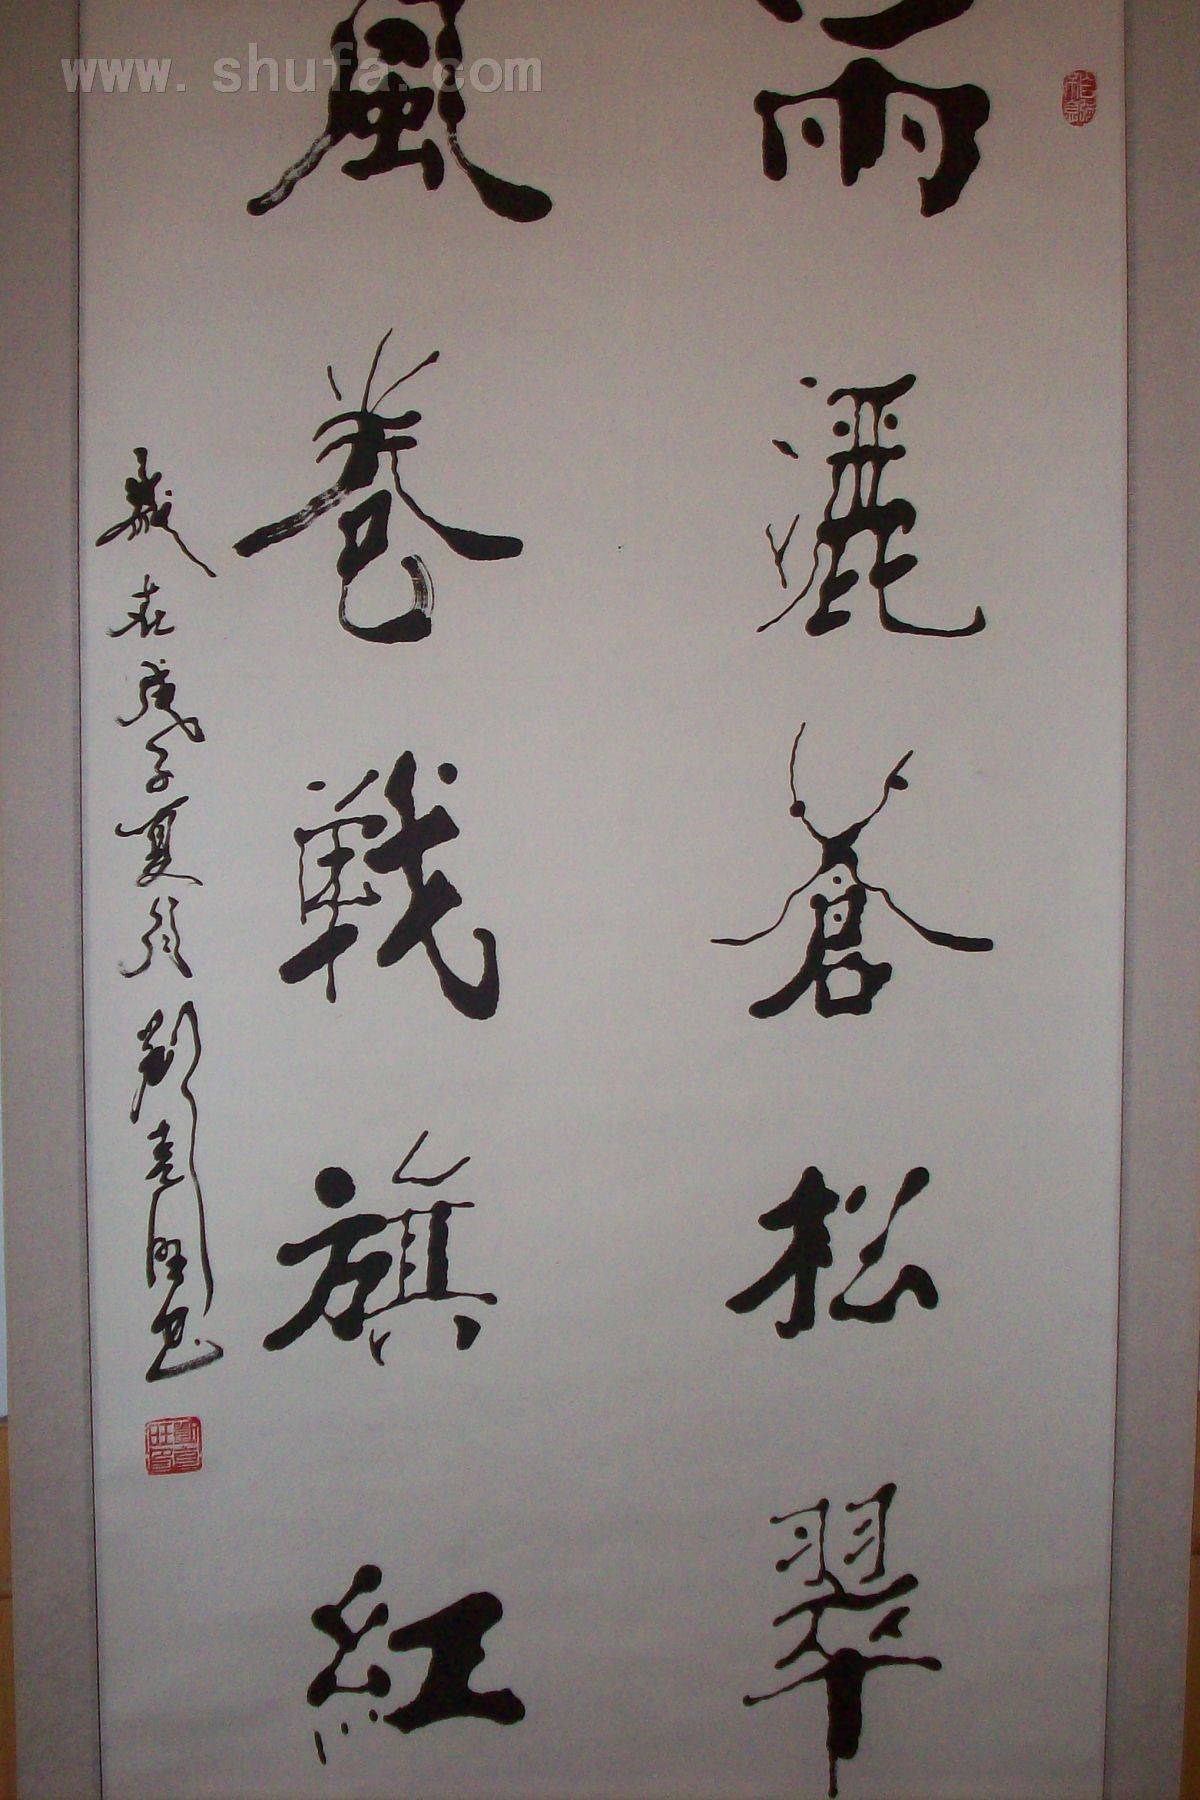 雨灑蒼松翠
風卷戰旗紅
歲在戊子夏月劉克旺书
www.shufa.com